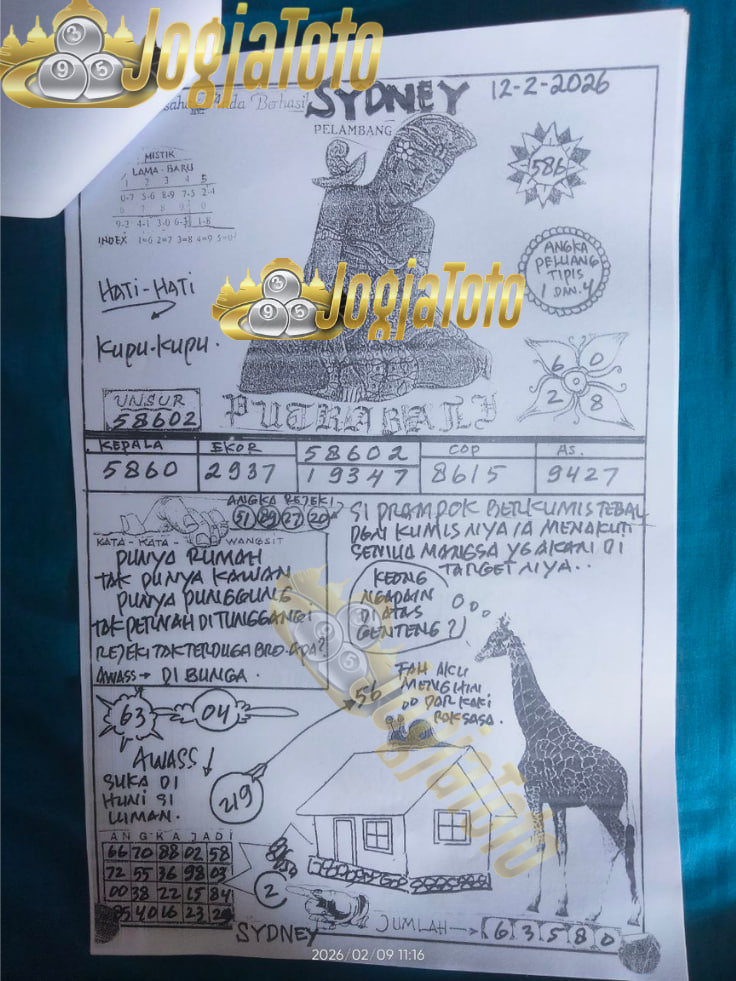 JogjaToto
3 9 5
SYDNEY
12-2-2026
PELAMBANG
MISTIK
LAMA - BARU
1 2 3 4 5
0-7 5-6 8-9 7-5 2-4
6 7 8 9 0
9-2 4-1 3-0 6-3 1-8
INDEX 1=6 2=7 3=8 4=9 5=0
586
ANGKA
PELUANG
TIPIS
1 DAN 4
HATI-HATI
JogjaToto
3 9 5
KUPU-KUPU.
6 0
2 8
UNSUR
58602
PUTRA BALI
KEPALA EKOR 58602 COP AS.
5860 2937 19347 8615 9427
ANGKA REJEKI
51 89 27 20
KATA - KATA - WANGSIT
PUNYA RUMAH
TAK PUNYA KAWAN
PUNYA PUNGGUNG
TAK PERNAH DI TUNGGANGI
REJEKI TAK TERDUGA BRO. ADA?
AWASS → DI BUNGA.
SI PRAMPOK BERKUMIS TEBAL
DGN KUMIS NIYA IA MENAKUTI
SEMUA MANGSA YG AKAN DI
TARGET NIYA..
KEONG
NGAPAIN
DI ATAS
GENTENG?
3 9 5
JogjaToto
56
DARI KAKI
RAKSASA.
63 04
AWASS
SUKA DI
HUNI SI
LUMAN.
219
ANGKA JADI
66 70 88 02 58
72 55 36 98 03
00 38 22 15 84
85 40 16 23
2
JUMLAH → 6 3 5 8 0
SYDNEY
2026/02/09 11:16